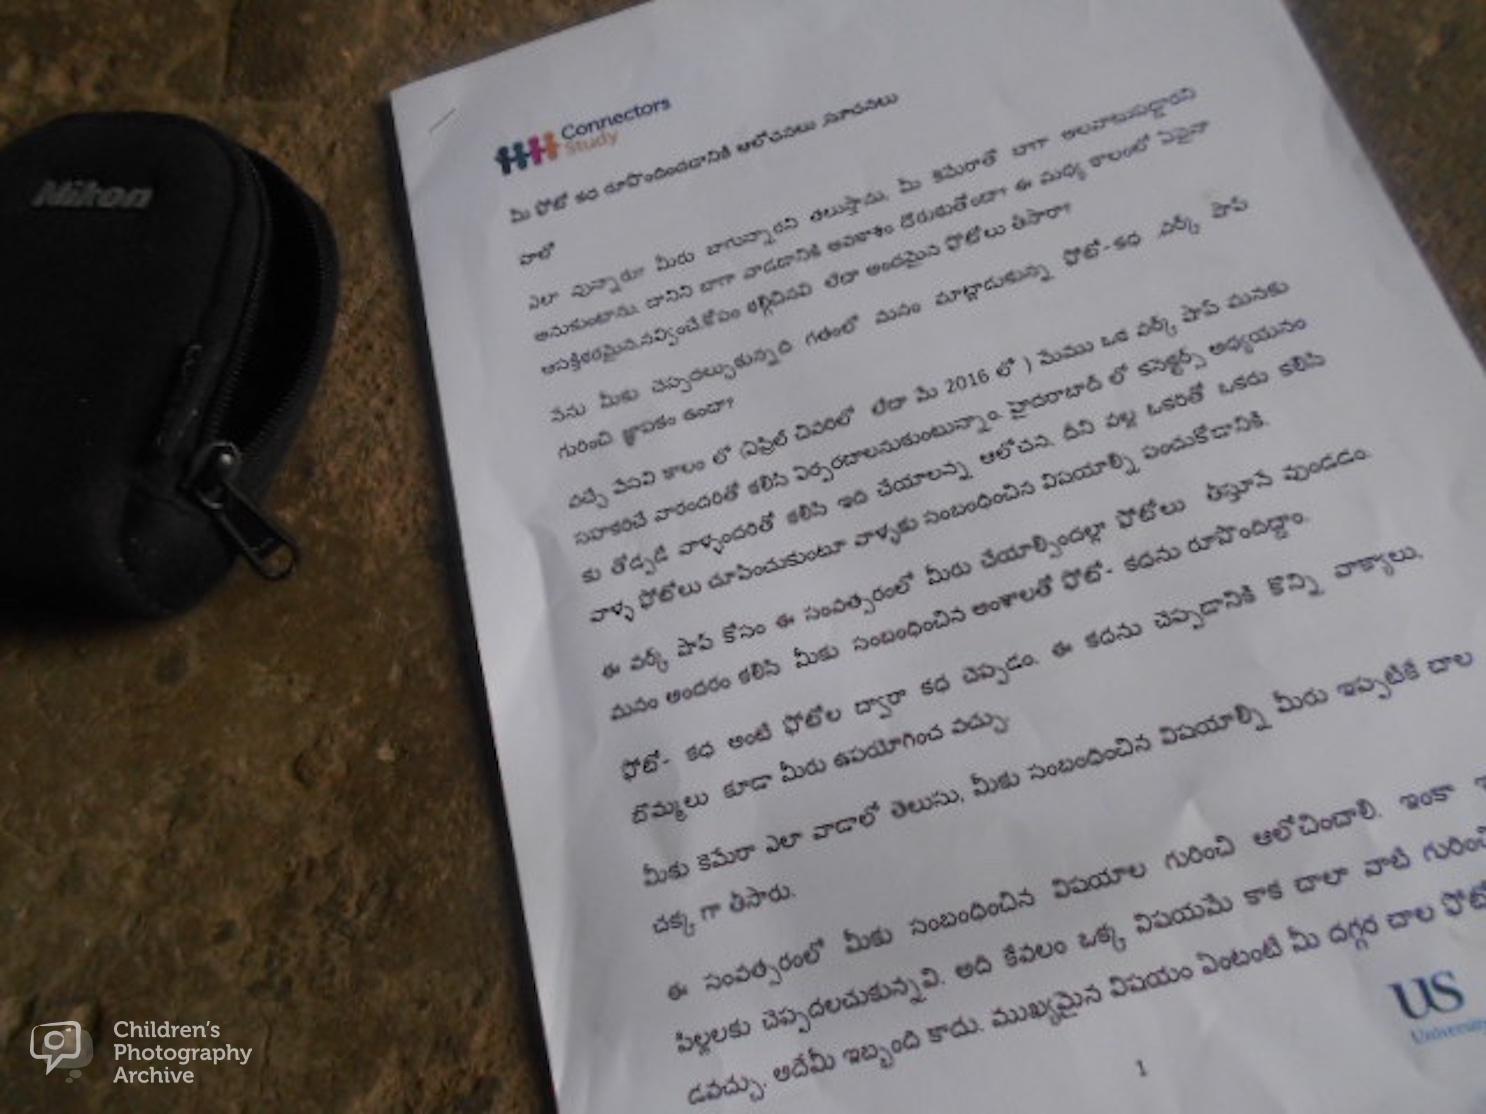 Nikon
Connectors
Study
మీ ఫోటో కధ రూపొందించడానికి ఆలోచనలు సూచనలు
హలో
ఎలా వున్నారు? మీరు బాగున్నారని తలుస్తాను. మీ కెమెరాతో బాగా అలవాటుపడ్డారని
అనుకుంటాను. దానిని బాగా వాడడానికి అవకాశం దొరుకుతోందా? ఈ మధ్య కాలంలో ఏవైనా
ఆసక్తికరమైన,నవ్వించే,కోపం కల్గించినవి లేదా అందమైన ఫోటోలు తీసారా?
నేను మీకు చెప్పదల్చుకున్నది గతంలో మనం మాట్లాడుకున్న ఫోటో-కధ వర్క్ షాప్
గురించి జ్ఞాపకం ఉందా?
వచ్చే వేసవి కాలం లో (ఏప్రిల్ చివరిలో లేదా మే 2016 లో ) మేము ఒక వర్క్ షాప్ మనకు
సహకరించే వారందరితో కలిసి ఏర్పరచాలనుకుంటున్నాం. హైదరాబాద్ లో కనెక్టర్స్ అధ్యయనం
కు తోడ్పడే వాళ్ళందరితో కలిసి ఇది చేయాలన్న ఆలోచన. దీని వల్ల ఒకరితో ఒకరు కలిసి
వాళ్ళ ఫోటోలు చూపించుకుంటూ వాళ్ళకు సంబంధించిన విషయాల్ని పంచుకోడానికి.
ఈ వర్క్ షాప్ కోసం ఈ సంవత్సరంలో మీరు చేయాల్సిందల్లా ఫోటోలు తీస్తూనే వుండడం.
మనం అందరం కలిసి మీకు సంబంధించిన అంశాలతో ఫోటో- కధను రూపొందిద్దాం.
ఫోటో- కధ అంటే ఫోటోల ద్వారా కధ చెప్పడం. ఈ కధను చెప్పడానికి కొన్ని వాక్యాలు,
బొమ్మలు కూడా మీరు ఉపయోగించ వచ్చు.
మీకు కెమెరా ఎలా వాడాలో తెలుసు. మీకు సంబంధించిన విషయాల్ని మీరు ఇప్పటికే చాల
చక్క గా తీసారు.
ఈ సంవత్సరంలో మీకు సంబంధించిన విషయాల గురించి ఆలోచించాలి. ఇంకా
పిల్లలకు చెప్పదలచుకున్నవి. అది కేవలం ఒక్క విషయమే కాక చాలా వాటి గురించి
డవచ్చు. అదేమీ ఇబ్బంది కాదు. ముఖ్యమైన విషయం ఏంటంటే మీ దగ్గర చాల ఫోటో
US
University
1
Children's
Photography
Archive